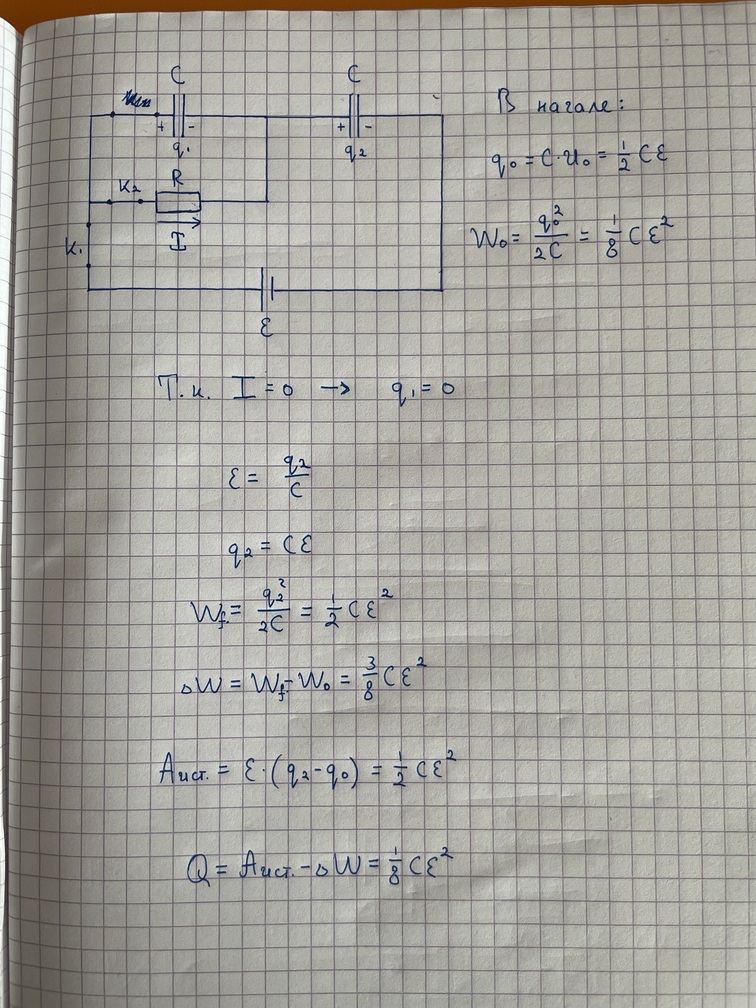 C C
+ - + -
q₁ q₂
K₂ R
I
K₁
ε
В начале:
q₀ = C·U₀ = 1/2 Cε
W₀ = q₀²/2C = 1/8 Cε²
Т.к. I = 0 → q₁ = 0
ε = q₂/C
q₂ = Cε
W_f = q₂²/2C = 1/2 Cε²
△W = W_f - W₀ = 3/8 Cε²
Aист. = ε·(q₂-q₀) = 1/2 Cε²
Q = Aист. - △W = 1/8 Cε²